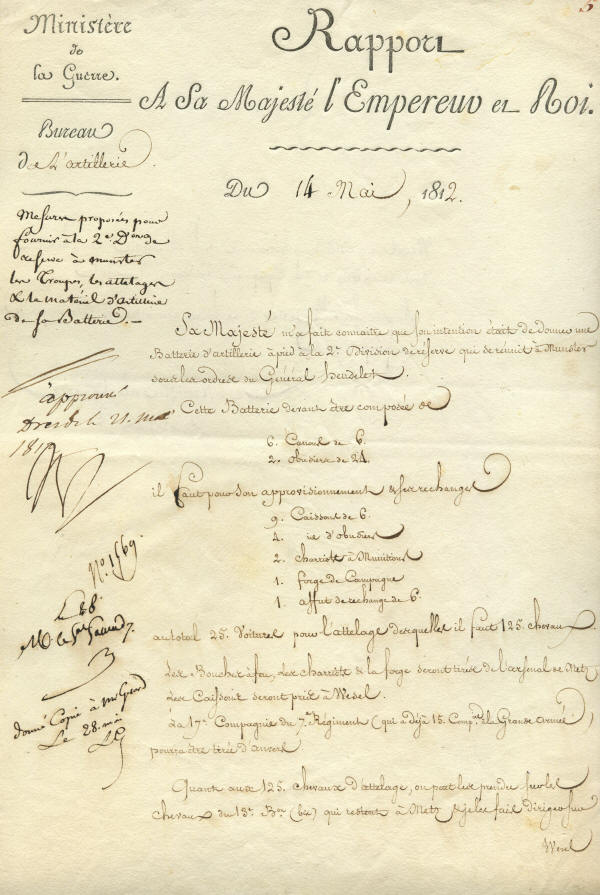 5
Ministère
de
la Guerre.
Bureau
de L'artillerie.
Rapport
A Sa Majesté l'Empereur et Roi.
Du 14 Mai, 1812.
Mesures proposées pour
fournir à la 2.e D.on de
réserve à munster
les Troupes, les attelages
& le matériel d'artillerie
de sa Batterie.
approuvé
Dresde le 21. mai
1812
N.o 1569.
M. le
donné Copie à Mr
Le 28. mai
Sa Majesté m'a fait connaître que son intention était de donner une
Batterie d'artillerie à pied à la 2.e Division de réserve qui se réunit à Munster
sous les ordres du Général heudelet.
Cette Batterie devant être composée de
6. Canons de 6.
2. obusiers de 24.
il faut pour son approvisionnement & ses rechanges
9. Caissons de 6.
4. id d'obusiers
2. chariots à Munitions
1. forge de Campagne
1. affut de rechange de 6.
au total 25. Voitures pour l'attelage desquelles il faut 125. chevaux.
Les Bouches à feu, Les chariots & la forge seront tirés de l'arsenal de Metz
Les Caissons seront pris à Wesel.
La 17.e Compagnie du 7.e Régiment (qui a déjà 15. Comp.nies à la Grande armée),
pourra être tirée d'anvers
Quant aux 125. chevaux d'attelage, on peut les prendre sur les
chevaux du 13.e B.on (bis) qui restent à Metz & je les fais diriger sur
Wesel